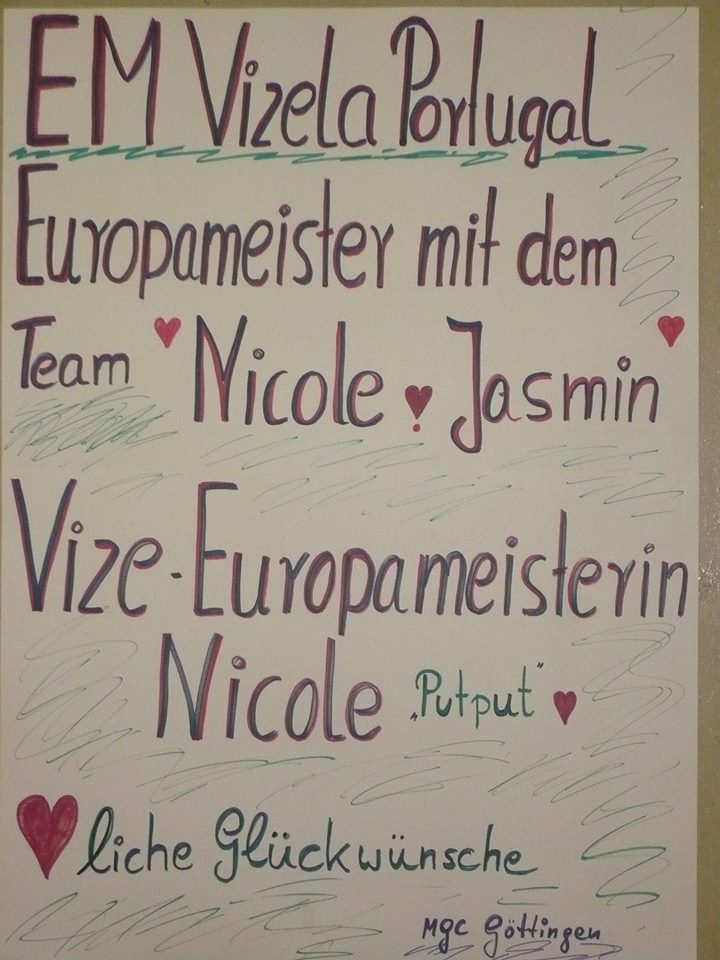 EM Vizela Portugal
Europameister mit dem
Team Nicole Jasmin
Vize-Europameisterin
Nicole „Putput“
liche Glückwünsche
MGC Göttingen